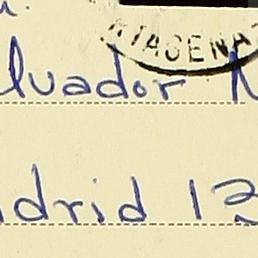 RTAGENA
lvador
drid 13